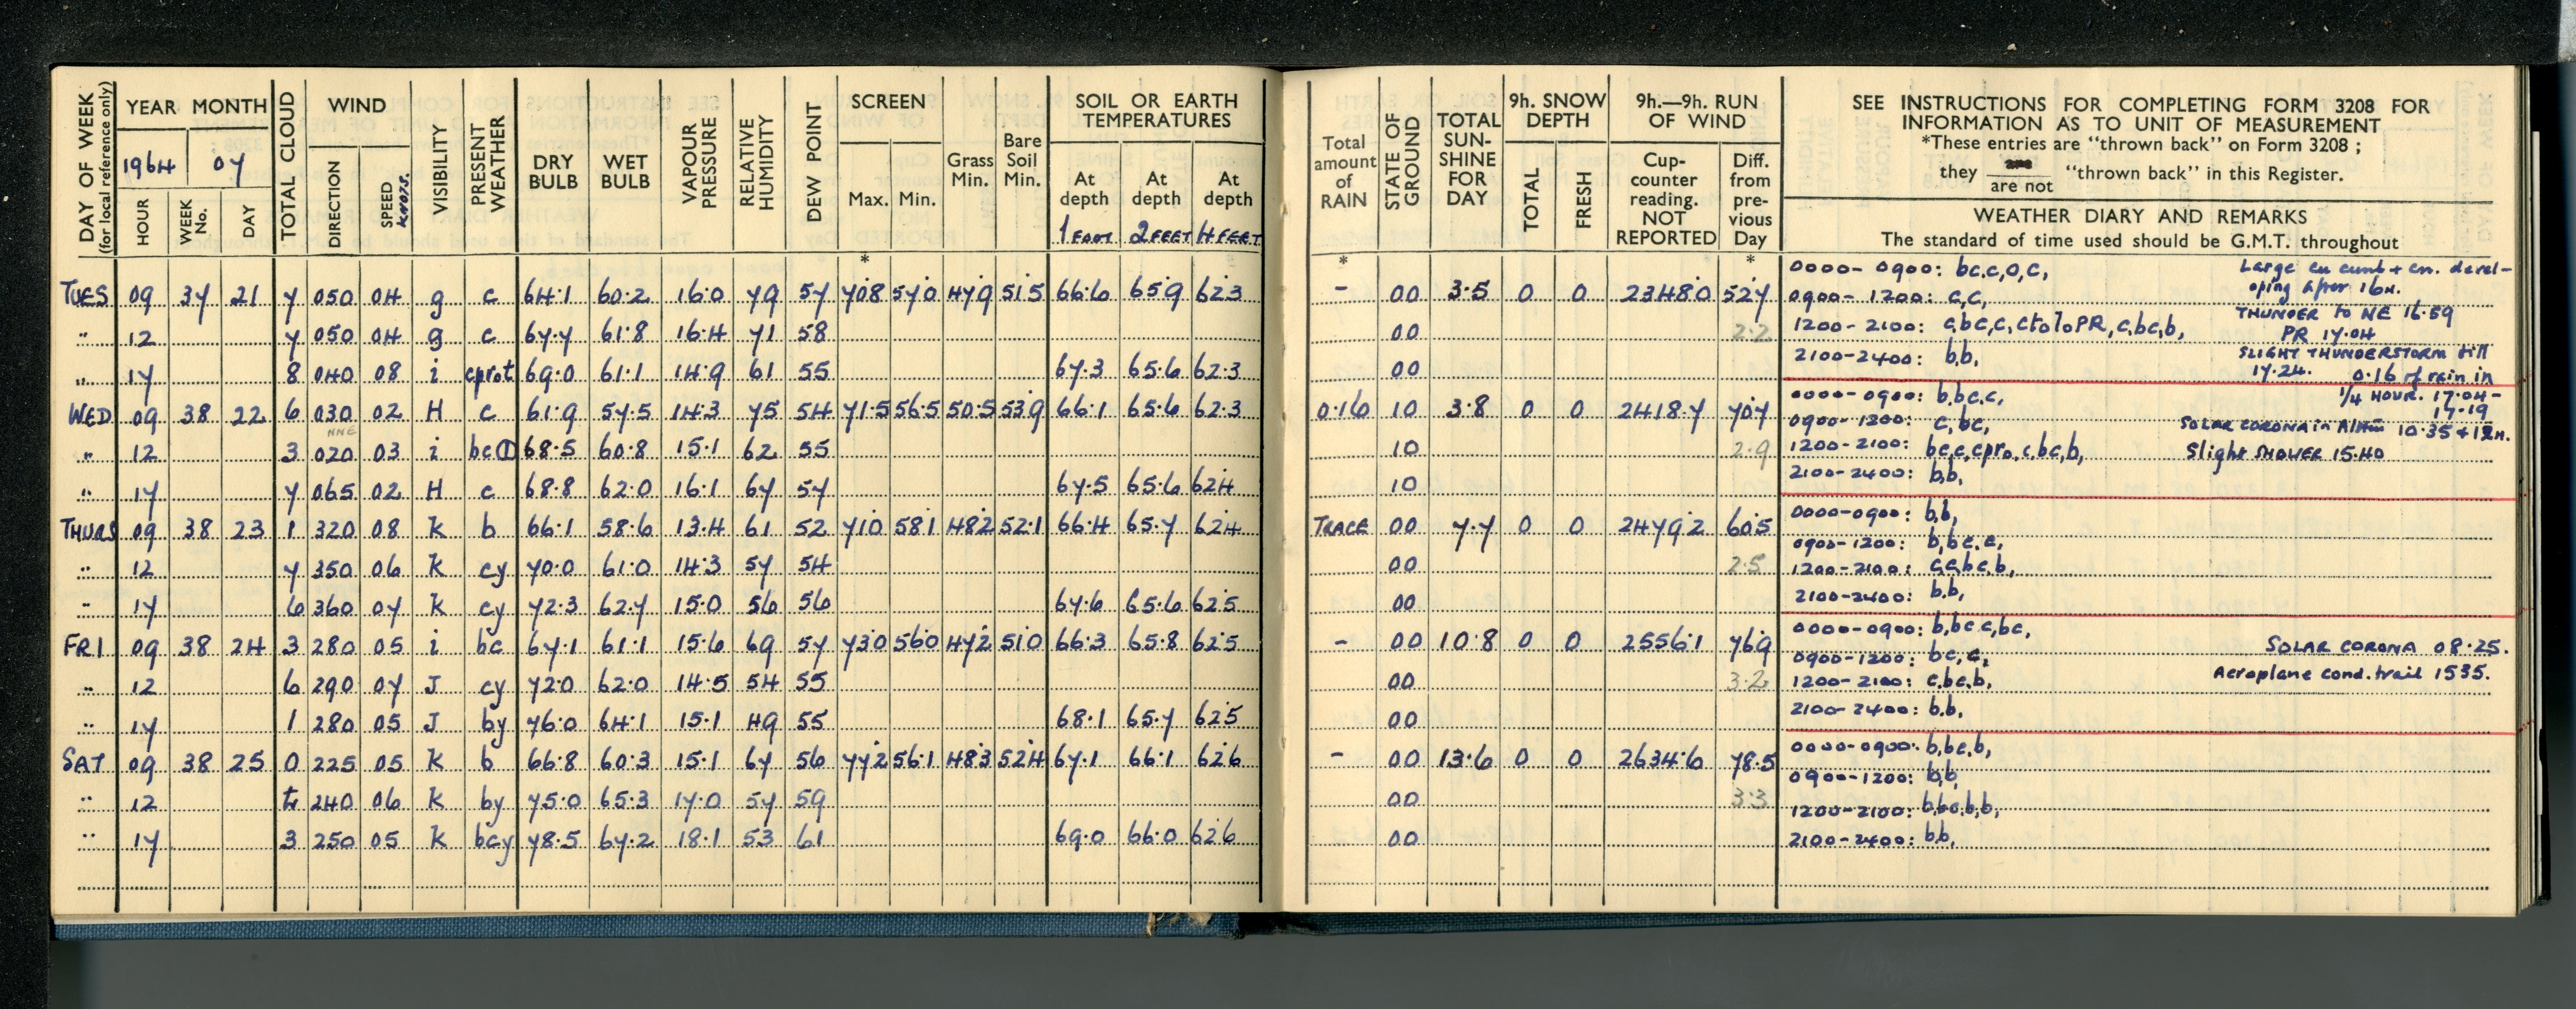 DAY OF WEEK (for local reference only) YEAR MONTH TOTAL CLOUD WIND VISIBILITY PRESENT WEATHER DRY BULB WET BULB VAPOUR PRESSURE RELATIVE HUMIDITY DEW POINT SCREEN Grass Min. Bare Soil Min. SOIL OR EARTH TEMPERATURES
1964 07
HOUR WEEK No. DAY DIRECTION SPEED KNOTS. Max. Min. At depth 1 FOOT At depth 2 FEET At depth 4 FEET
*
TUES 09 37 21 7 050 04 g c 64.1 60.2 16.0 79 57 70.8 57.0 47.9 51.5 66.6 65.9 62.3
" 12 7 050 04 g c 67.7 61.8 16.4 71 58
" 17 8 040 08 i cprot 69.0 61.1 14.9 61 55 67.3 65.6 62.3
WED 09 38 22 6 030 02 H c 61.9 57.5 14.3 75 54 71.5 56.5 50.5 53.9 66.1 65.6 62.3
NNE
" 12 3 020 03 i bc 68.5 60.8 15.1 62 55
" 17 7 065 02 H c 68.8 62.0 16.1 67 57 67.5 65.6 62.4
THURS 09 38 23 1 320 08 k b 66.1 58.6 13.4 61 52 71.0 58.1 48.2 52.1 66.4 65.7 62.4
" 12 7 350 06 k cy 70.0 61.0 14.3 57 54
" 17 6 360 07 k cy 72.3 62.7 15.0 56 56 67.6 65.6 62.5
FRI 09 38 24 3 280 05 i bc 67.1 61.1 15.6 69 57 73.0 56.0 47.2 51.0 66.3 65.8 62.5
" 12 6 290 07 J cy 72.0 62.0 14.5 54 55
" 17 1 280 05 J by 76.0 64.1 15.1 49 55 68.1 65.7 62.5
SAT 09 38 25 0 225 05 k b 66.8 60.3 15.1 67 56 77.2 56.1 48.3 52.4 67.1 66.1 62.6
" 12 240 06 k by 75.0 65.3 17.0 57 59
" 17 3 250 05 k bcy 78.5 67.2 18.1 53 61 69.0 66.0 62.6
Total amount of RAIN STATE OF GROUND TOTAL SUN-SHINE FOR DAY 9h. SNOW DEPTH TOTAL FRESH 9h.—9h. RUN OF WIND Cup-counter reading. NOT REPORTED Diff. from pre-vious Day
SEE INSTRUCTIONS FOR COMPLETING FORM 3208 FOR
INFORMATION AS TO UNIT OF MEASUREMENT
*These entries are "thrown back" on Form 3208 ;
they are / are not "thrown back" in this Register.
WEATHER DIARY AND REMARKS
The standard of time used should be G.M.T. throughout
* *
- 00 3.5 0 0 2348.0 52.7
00 2.2
00
0.16 10 3.8 0 0 2418.7 70.7
10 2.9
10
TRACE 00 7.7 0 0 2479.2 60.5
00 2.5
00
- 00 10.8 0 0 2556.1 76.9
00 3.2
00
- 00 13.6 0 0 2634.6 78.5
00 3.3
00
0000-0900: bc,c,o,c,
0900-1200: c,c,
1200-2100: c,bc,c,ctoloPR,c,bc,b,
2100-2400: b,b,
Large cu cumb + cn. devel-
oping after 16H.
THUNDER to NE 16.59
PR 17.04
SLIGHT THUNDERSTORM till
17.24. 0.16 of rain in
1/4 HOUR. 17.04-
17.19
0000-0900: b,bc,c,
0900-1200: c,bc,
1200-2100: bc,c,cpro,c,bc,b,
2100-2400: b,b,
SOLAR CORONA in 10.35 + 12H.
Slight SHOWER 15.40
0000-0900: b,b,
0900-1200: b,bc,c,
1200-2100: c,c,bc,b,
2100-2400: b,b,
0000-0900: b,bc,c,bc,
0900-1200: bc,c,
1200-2100: c,bc,b,
2100-2400: b,b,
SOLAR CORONA 08.25.
Aeroplane cond. trail 1535.
0000-0900: b,bc,b,
0900-1200: b,b,
1200-2100: b,bc,b,b,
2100-2400: b,b,